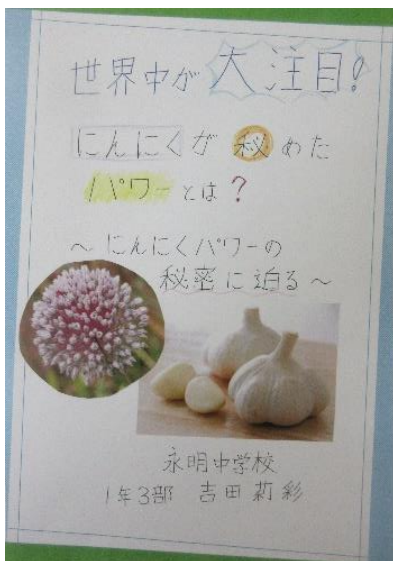 世界中が大注目!
にんにくが秘めた
パワーとは?
～にんにくパワーの
秘密に迫る～
永明中学校
1年3部 吉田莉彩